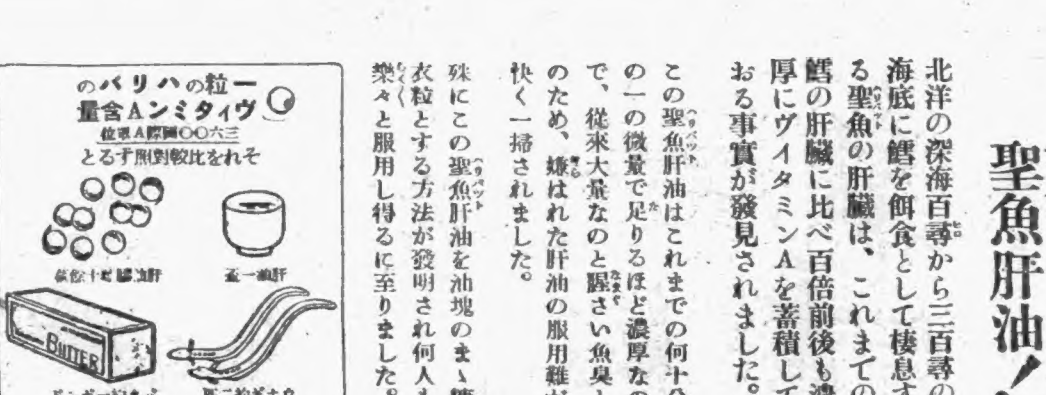 聖魚肝油！
北洋の深海百尋から三百尋の
海底に鱈を餌食として棲息す
る聖魚の肝臓は、これまでの
鱈の肝臓に比べ百倍前後も濃
厚にヴイタミンAを蓄積して
おる事實が發見されました。
この聖魚肝油はこれまでの何十分
の一の微量で足りるほど濃厚なの
で、從來大量なのと腥さい魚臭と
のため、嫌はれた肝油の服用難が
快く一掃されました。
殊にこの聖魚肝油を油塊のまゝ糖
衣粒とする方法が發明され何人も
樂々と服用し得るに至りました。
のバリハの粒一
量含Aンミタィヴ
位單A際國〇〇六三
とるす照對較比をれそ
盃一油肝
BUTTER